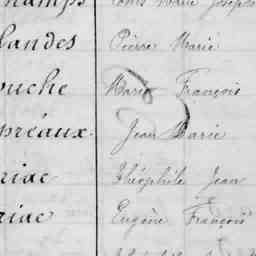 Louis Marie Joseph
landes Pierre Marie
ouche Marie François
préaux. Jean Marie
riac Théophile Jean
riac Eugène François